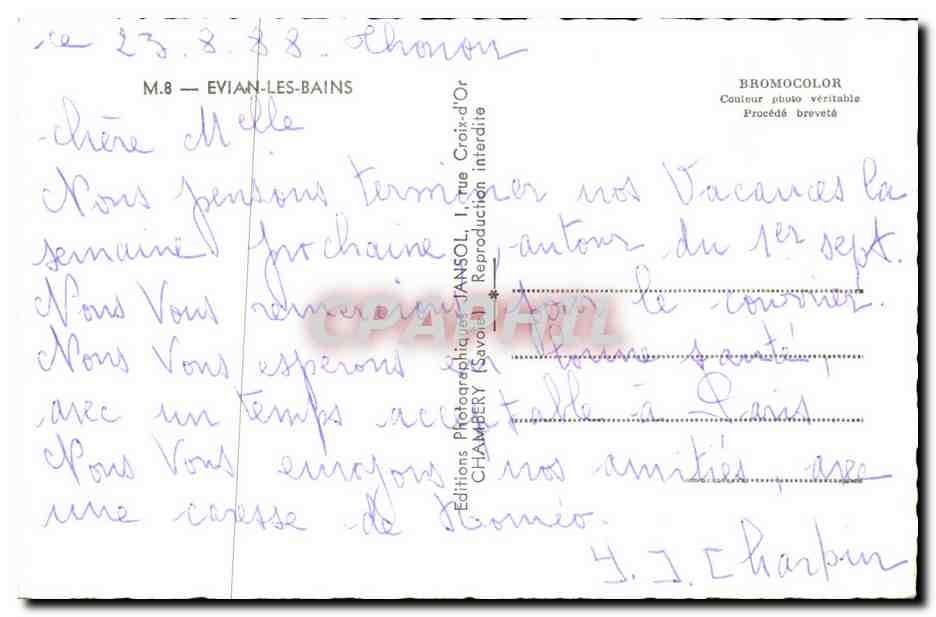 ce 23.8.88. Thonon
M.8 — EVIAN-LES-BAINS
BROMOCOLOR
Couleur photo véritable
Procédé breveté
chère Melle
Nous pensons terminer nos Vacances la
semaine prochaine, autour du 1er sept.
Nous Vous remercions pour le courrier.
Nous Vous esperons en bonne santé,
avec un temps acceptable à Paris
Nous Vous envoyons nos amitiés, avec
une caresse de Roméo.
Y. J. Charpin
Editions Photographiques JANSOL, 1, rue Croix-d'Or
CHAMBERY (Savoie) Reproduction interdite
CPAPHIL